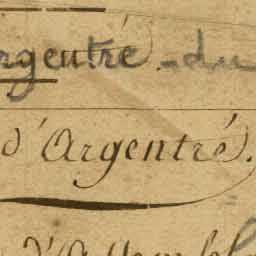 rgentré - du
d'Argentré.